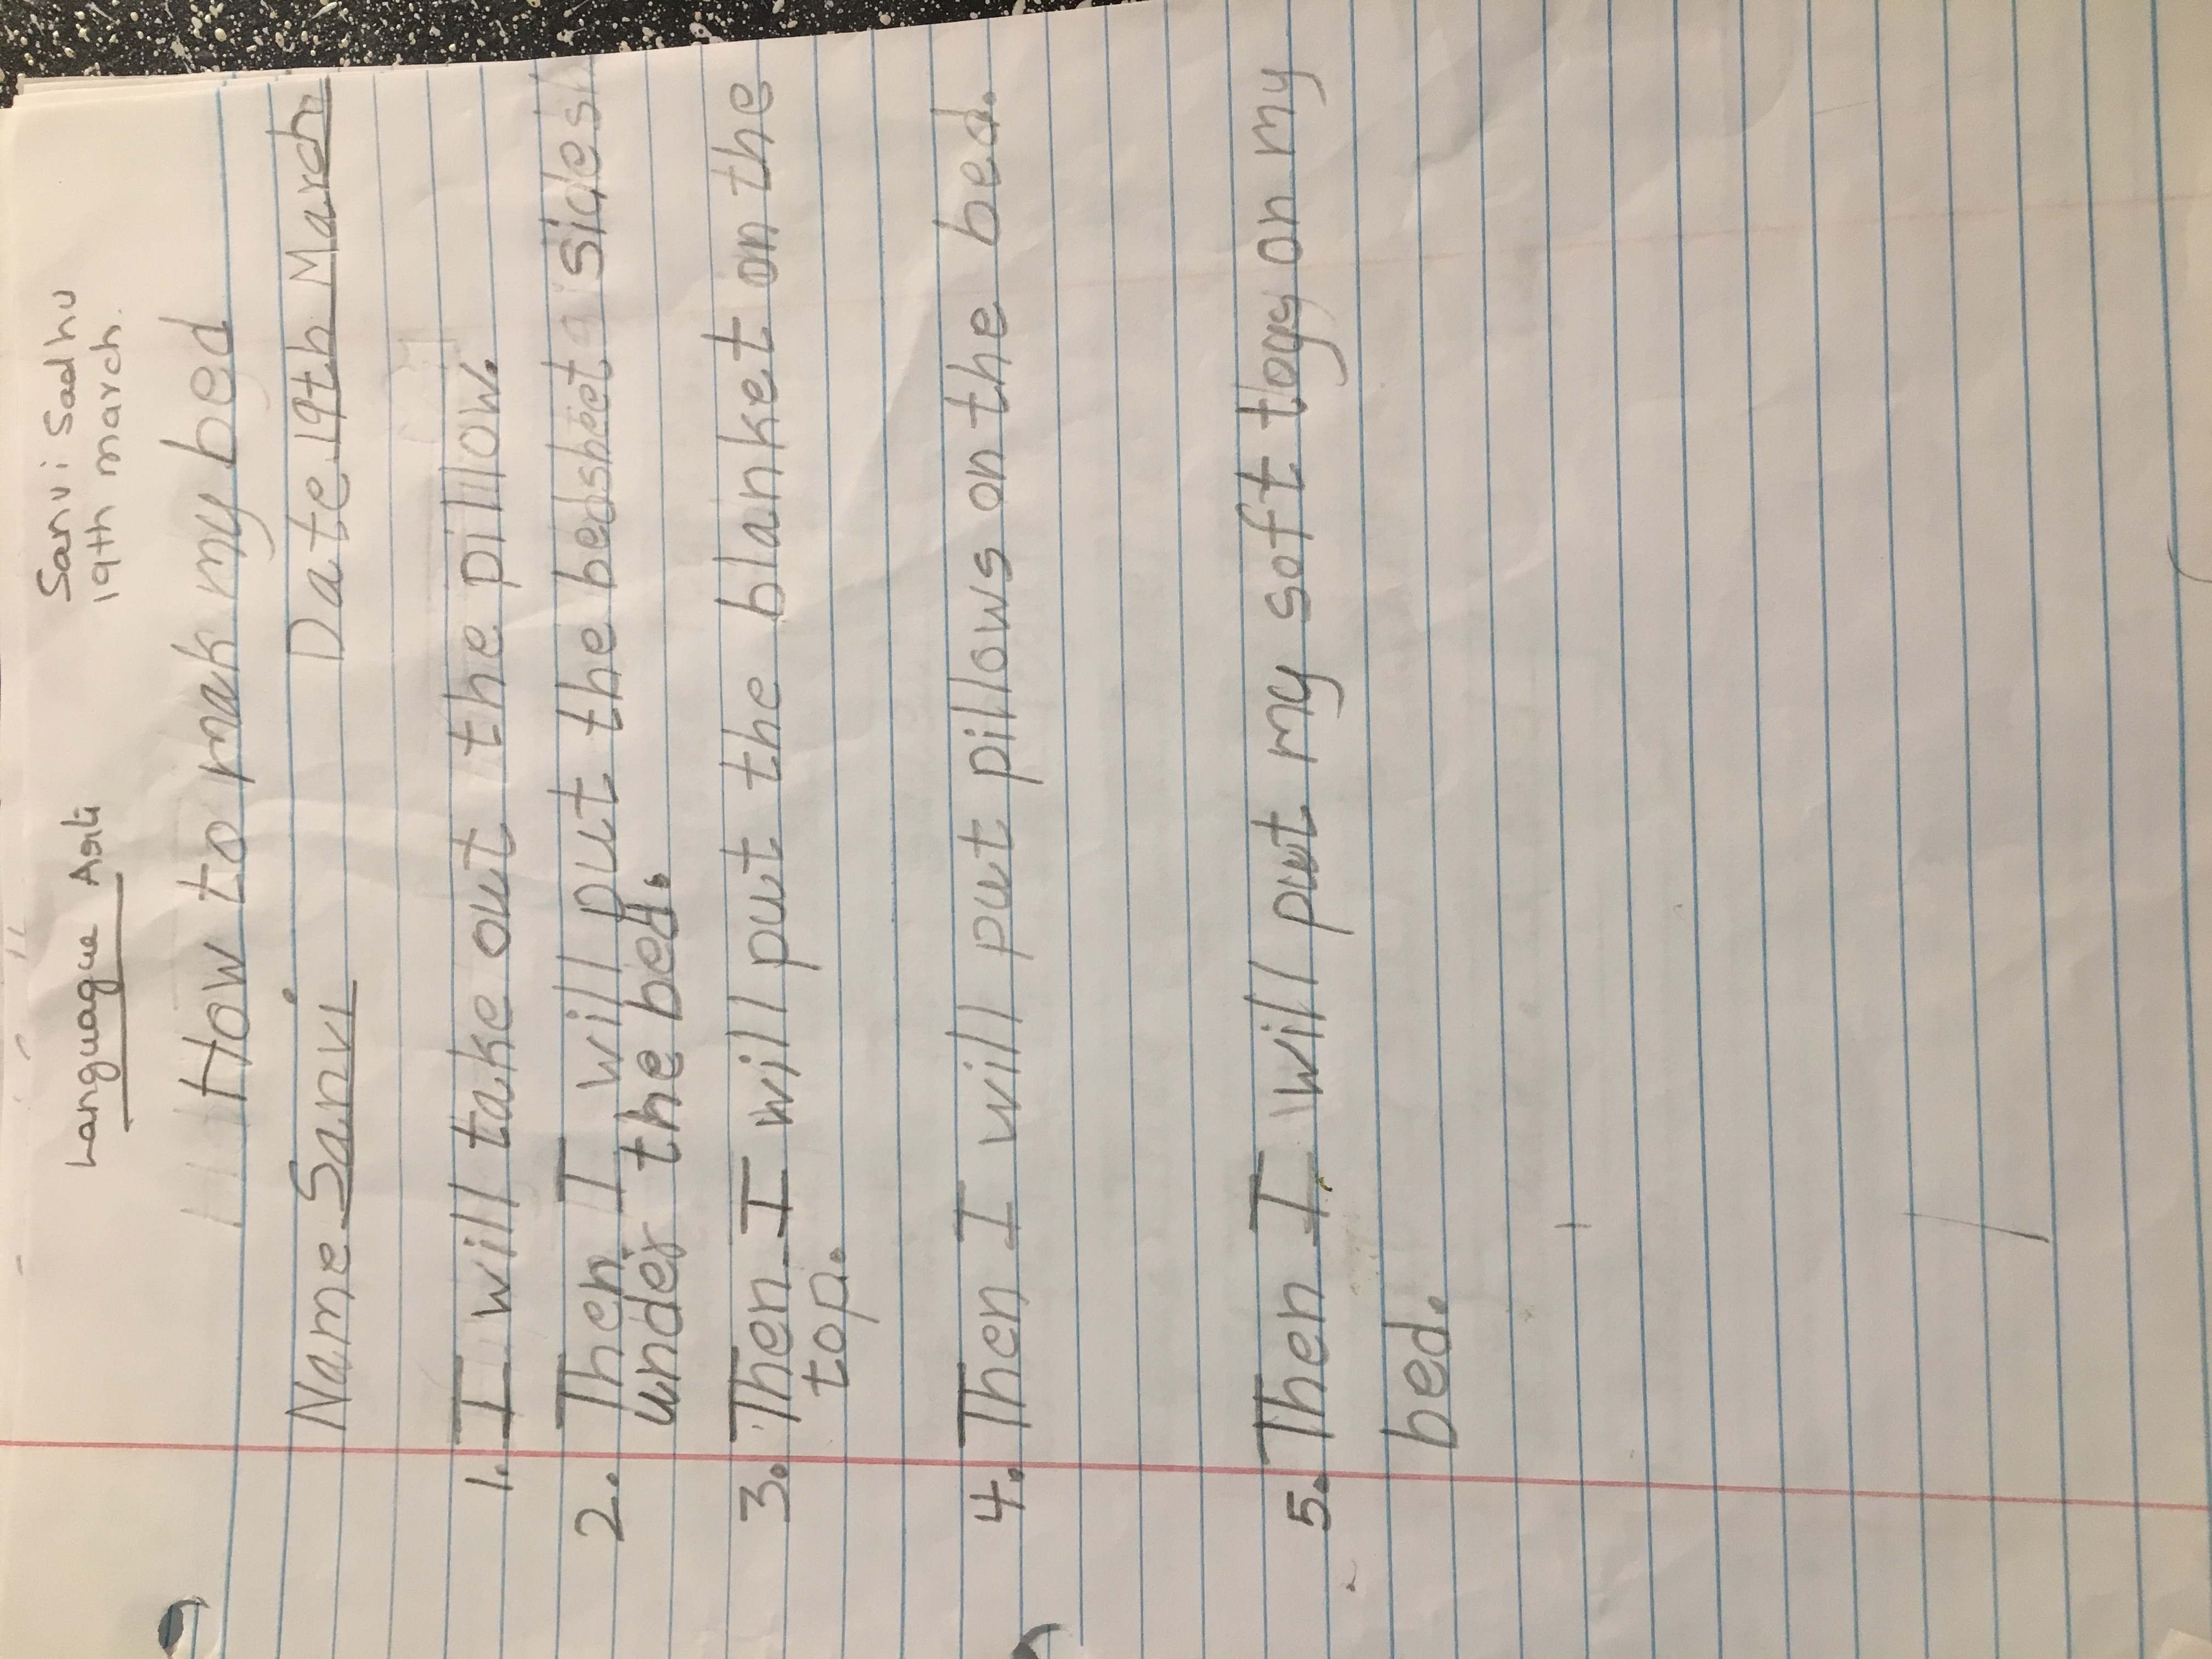 Languague Arts
Sanvi Sadhu
19th march.
How to mak my bed
Name Sanvi Date 19th March
1. I will take out the pilllow.
2. Then I will put the bedsheet sides
under the bed.
3. Then I will put the blanket on the
top.
4. Then I will put pillows on the bed.
5. Then I will put my soft toys on my
bed.